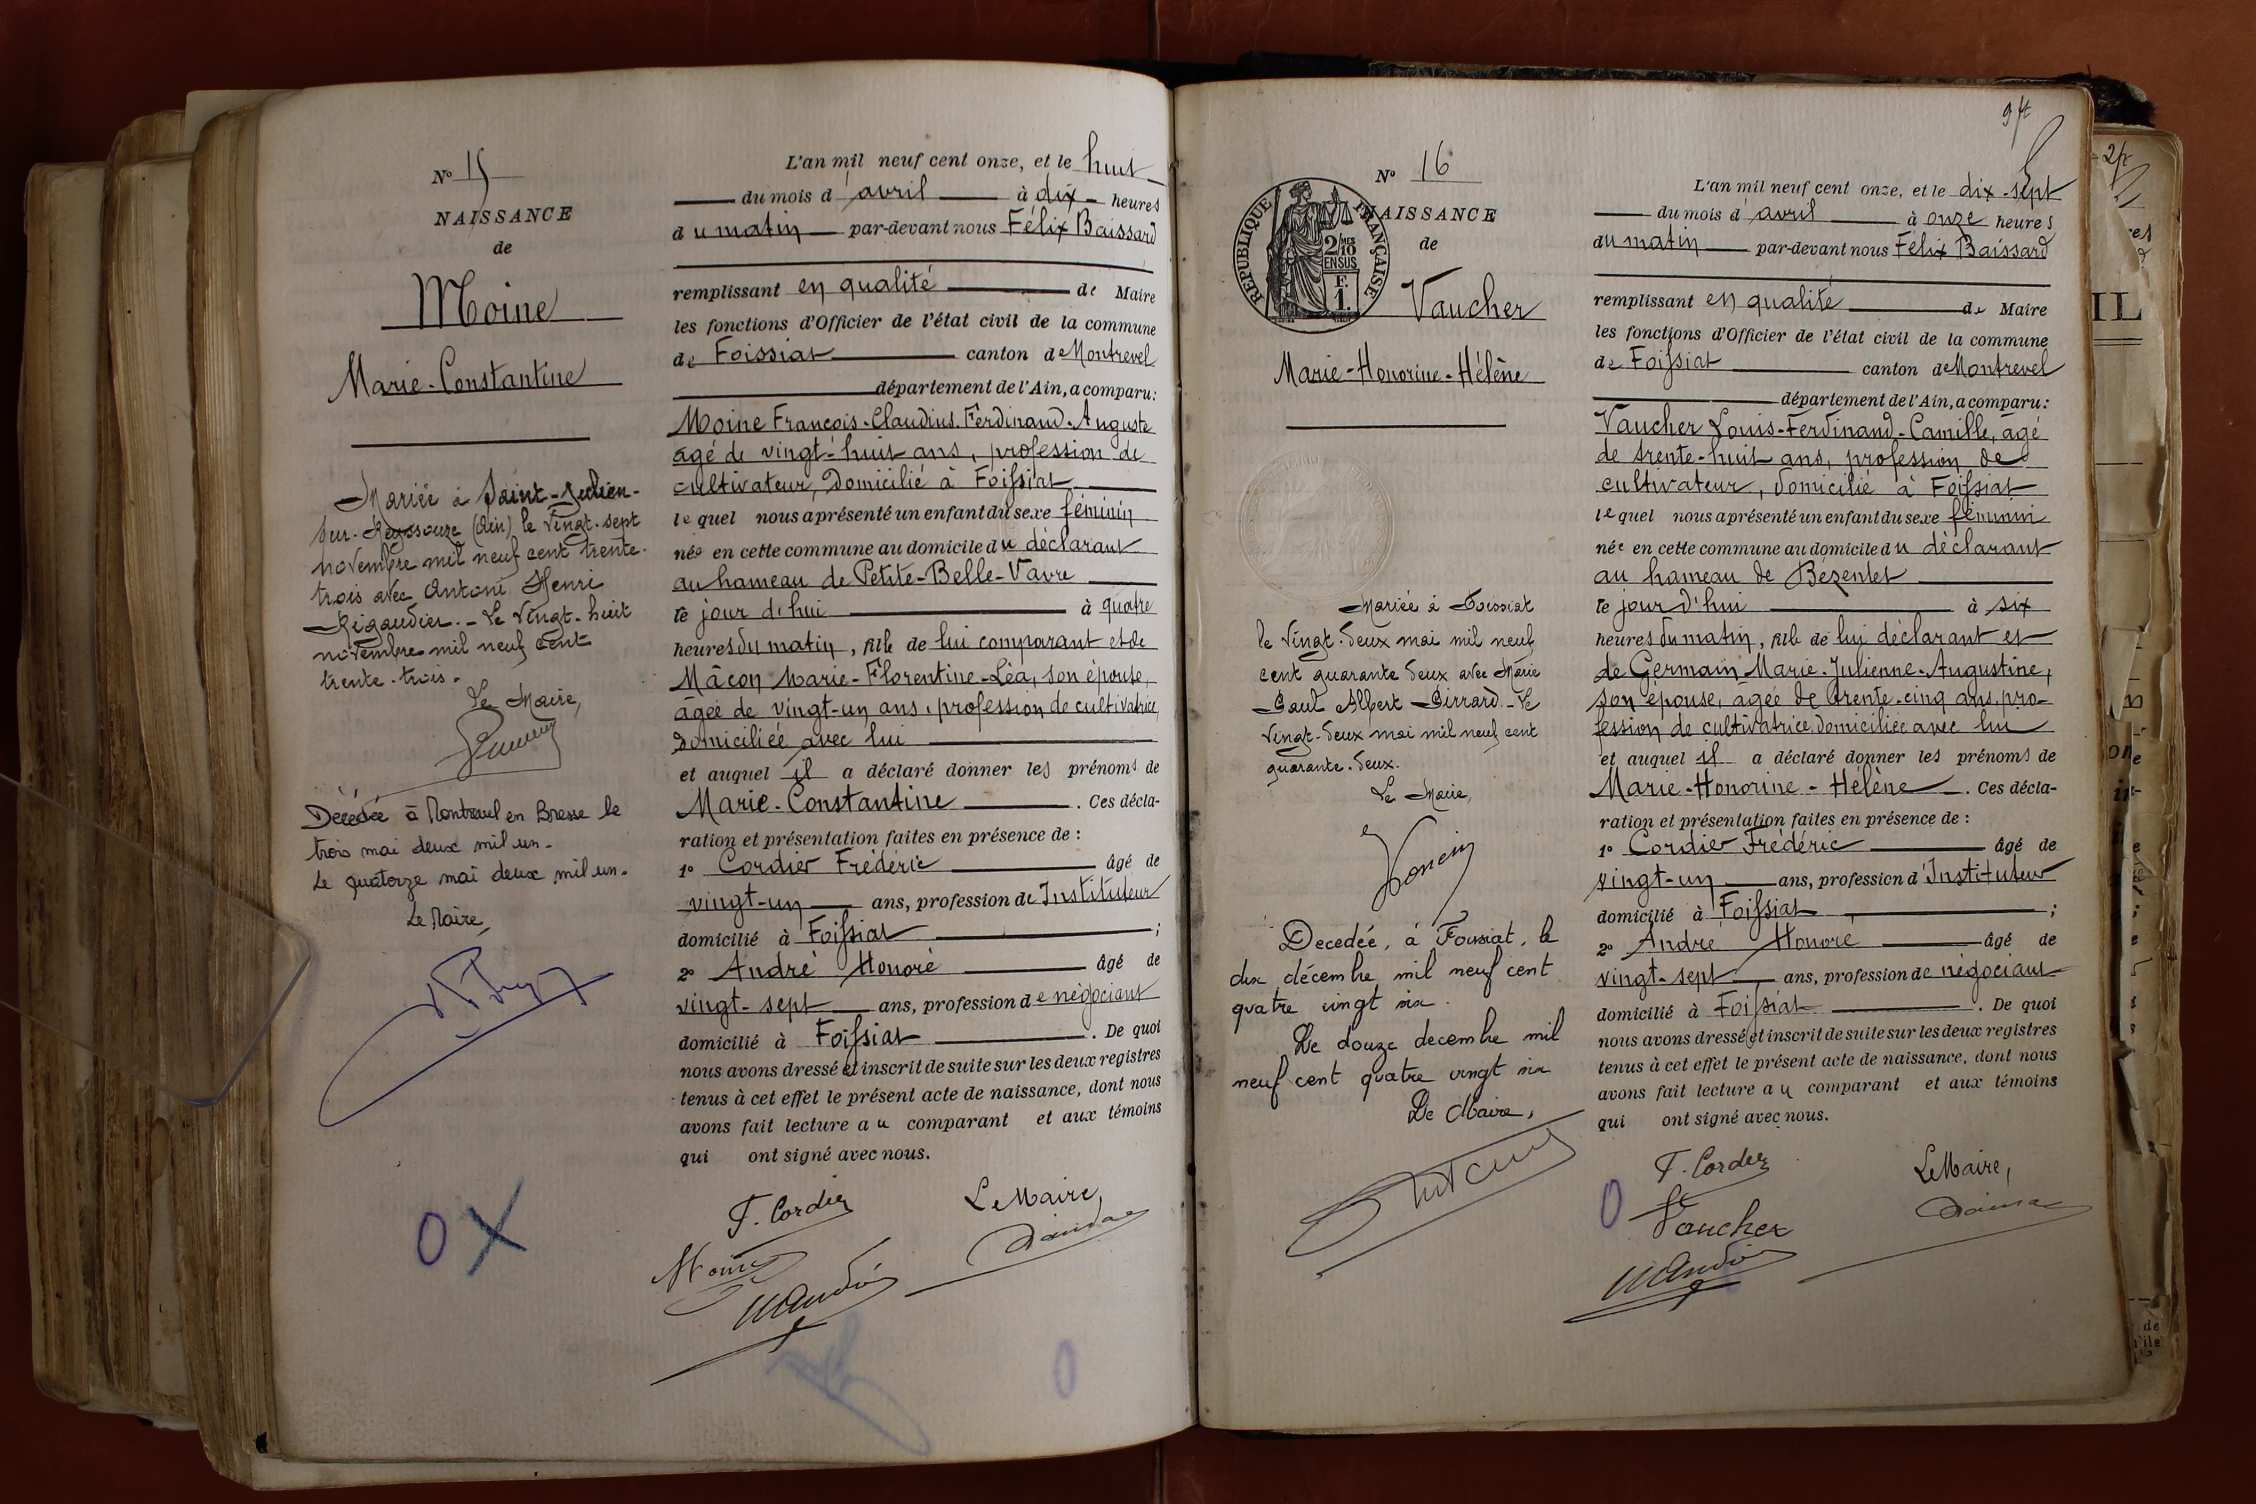 N° 15
NAISSANCE
de
Moine
Marie-Constantine
Mariée à Saint-Julien-
sur-Reyssouze (Ain) le vingt-sept
novembre mil neuf cent trente-
trois avec Antoine Henri
Rigaudier. - Le vingt-huit
novembre mil neuf cent
trente-trois.
Le Maire,
Décédée à Montrevel en Bresse le
trois mai deux mil un.
Le quatorze mai deux mil un.
Le Maire,
O X
L'an mil neuf cent onze, et le huit
du mois d'avril à dix heures
du matin par-devant nous Félix Baissard
remplissant en qualité de Maire
les fonctions d'Officier de l'état civil de la commune
de Foissiat canton de Montrevel
département de l'Ain, a comparu:
Moine François-Claudius-Ferdinand-Auguste
âgé de vingt-huit ans, profession de
cultivateur, domicilié à Foissiat
lequel nous a présenté un enfant du sexe féminin
née en cette commune au domicile du déclarant
au hameau de Petite-Belle-Vavre
le jour d'hui à quatre
heures du matin, fille de lui comparant et de
Mâcon Marie-Florentine-Léa, son épouse,
âgée de vingt-un ans, profession de cultivatrice,
domiciliée avec lui
et auquel il a déclaré donner les prénoms de
Marie-Constantine. Ces décla-
ration et présentation faites en présence de :
1° Cordier Frédéric âgé de
vingt-un ans, profession de Instituteur
domicilié à Foissiat ;
2° André Honoré âgé de
vingt-sept ans, profession de négociant
domicilié à Foissiat. De quoi
nous avons dressé et inscrit de suite sur les deux registres
tenus à cet effet le présent acte de naissance, dont nous
avons fait lecture au comparant et aux témoins
qui ont signé avec nous.
F. Cordier
Le Maire,
Moine
O
9 ft
N° 16
RÉPUBLIQUE FRANÇAISE
2/10 MES
EN SUS
F.
1.
NAISSANCE
de
Vaucher
Marie-Honorine-Hélène
Mariée à Foissiat
le vingt-deux mai mil neuf
cent quarante deux avec Marie
Paul Albert Girrard. - Le
vingt-deux mai mil neuf cent
quarante-deux.
Le Maire,
Decedée, à Foissiat, le
dix décembre mil neuf cent
quatre vingt six.
Le douze decembre mil
neuf cent quatre vingt six
Le Maire,
L'an mil neuf cent onze, et le dix-sept
du mois d'avril à onze heures
du matin par-devant nous Félix Baissard
remplissant en qualité de Maire
les fonctions d'Officier de l'état civil de la commune
de Foissiat canton de Montrevel
département de l'Ain, a comparu:
Vaucher Louis-Ferdinand-Camille, âgé
de trente-huit ans, profession de
cultivateur, domicilié à Foissiat
lequel nous a présenté un enfant du sexe féminin
née en cette commune au domicile du déclarant
au hameau de Bézentet
le jour d'hui à six
heures du matin, fille de lui déclarant et
de Germain Marie-Julienne-Augustine,
son épouse, agée de trente-cinq ans, pro-
fession de cultivatrice, domiciliée avec lui
et auquel il a déclaré donner les prénoms de
Marie-Honorine-Hélène. Ces décla-
ration et présentation faites en présence de :
1° Cordier Frédéric âgé de
vingt-un ans, profession d'Instituteur
domicilié à Foissiat ;
2° André Honoré âgé de
vingt-sept ans, profession de négociant
domicilié à Foissiat. De quoi
nous avons dressé et inscrit de suite sur les deux registres
tenus à cet effet le présent acte de naissance, dont nous
avons fait lecture au comparant et aux témoins
qui ont signé avec nous.
F. Cordier
Le Maire,
O
Vaucher